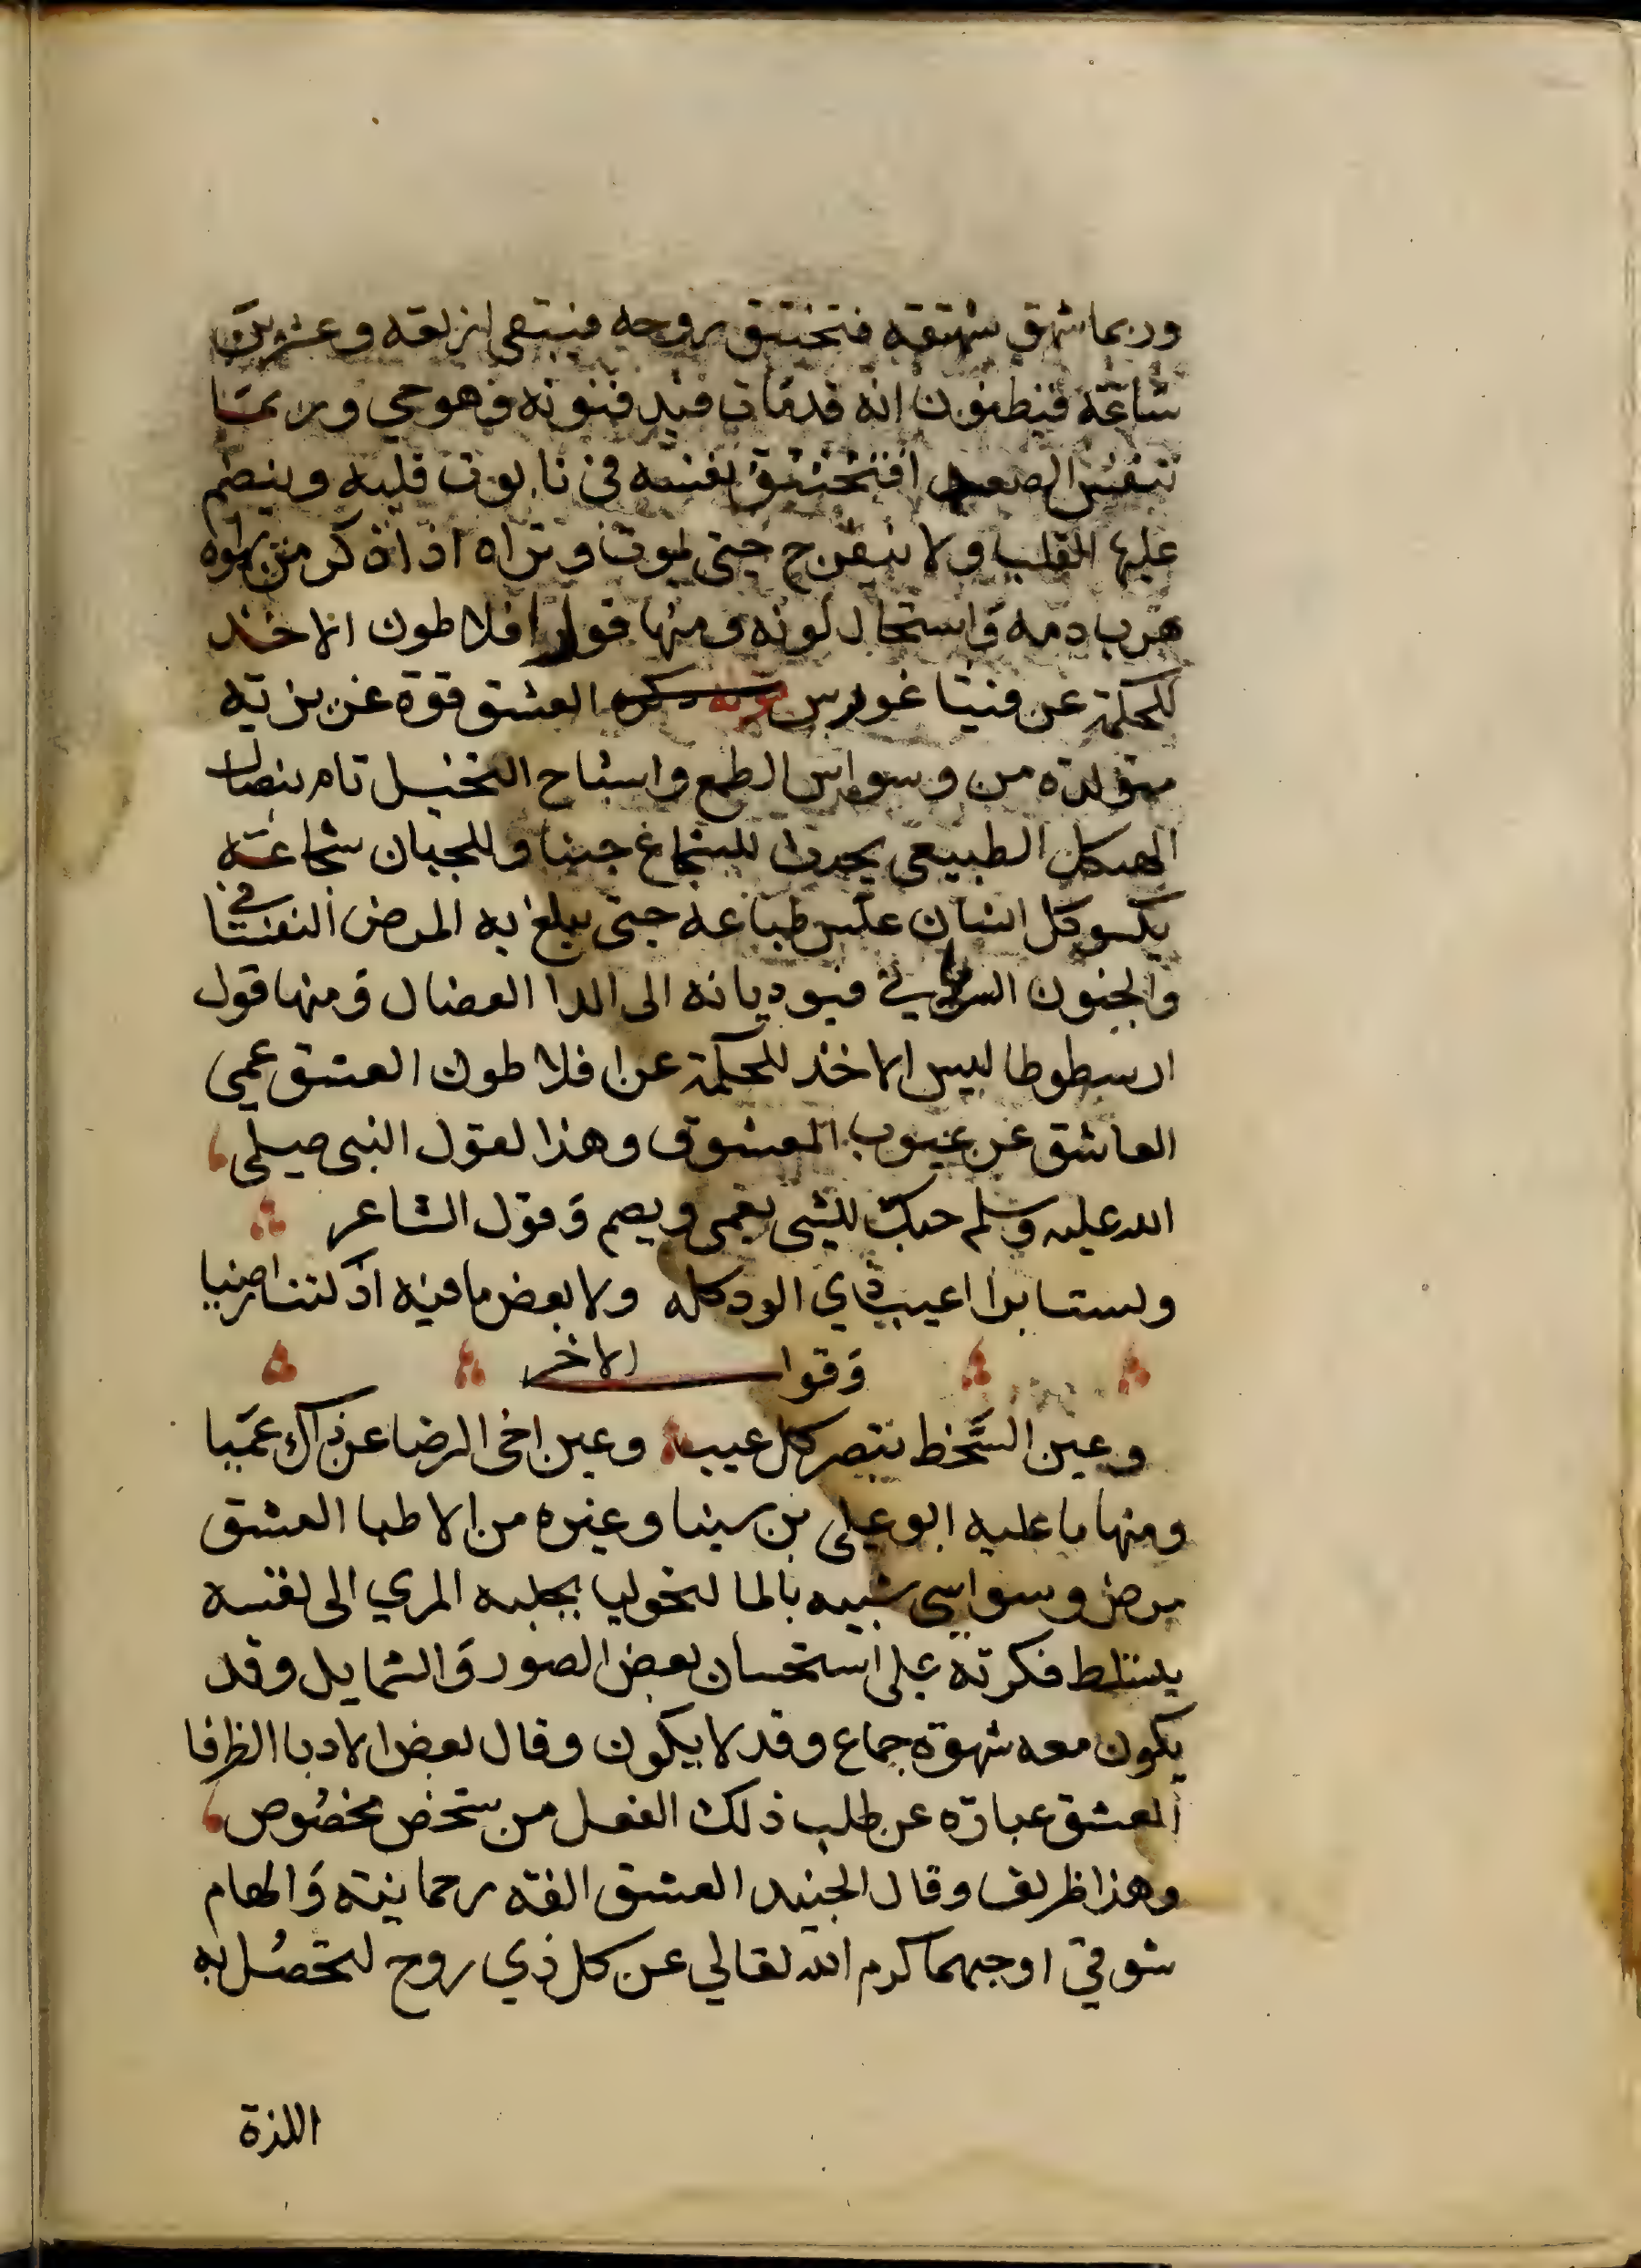 وربما شهق شهقة فتختنق روحه فيبقى اربعة وعشرين
ساعة فيظنون انه قد مات فيدفنونه وهو حي وربما
تنفس الصعدا فتختنق نفسه في تابوت قلبه وينضم
عليها القلب ولا ينفرج حتى يموت وتراه اذا ذكر من يهواه
هرب دمه واستحال لونه ومنها قول افلاطون الاخذ
للحكمة عن فيثاغورس العشق قوة غريزية
متولدة من وسواس الطمع واشباح التخيل نام بنصال
الهيكل الطبيعي يحدث للشجاع جبنا وللجبان شجاعة
يكسو كل انسان عكس طباعه حتى يبلغ به المرض النفسا في
والجنون السوا في فيوديانه الى الدا العضال ومنها قول
ارسطوطاليس الاخذ للحكمة عن افلاطون العشق عمى
العاشق عن عيوب المعشوق وهذا لقول النبي صلى
الله عليه وسلم حبك للشي يعمي ويصم وقول الشاعر
ولست برا اعيب ذي الود كله ولا بعض ما فيه اذ كنت راضيا
وقول الاخر
وعين السخط تبصر كل عيب وعين اخى الرضا عن ذاك عميا
ومنها ما عليه ابو علي بن سينا وغيره من الاطبا العشق
مرض وسواسي شبيه بالمالنخوليا يجلبه المري الى نفسه
بتسلط فكرته على استحسان بعض الصور والشمايل وقد
يكون معه شهوة جماع وقد لا يكون وقال بعض الادبا الظرفا
العشق عبارة عن طلب ذلك الفعل من شخص مخصوص
وهذا ظريف وقال الجنيد العشق الفة رحمانية والهام
شوقي اوجبهما كرم الله تعالي عن كل ذي روح لتحصل به
اللذة